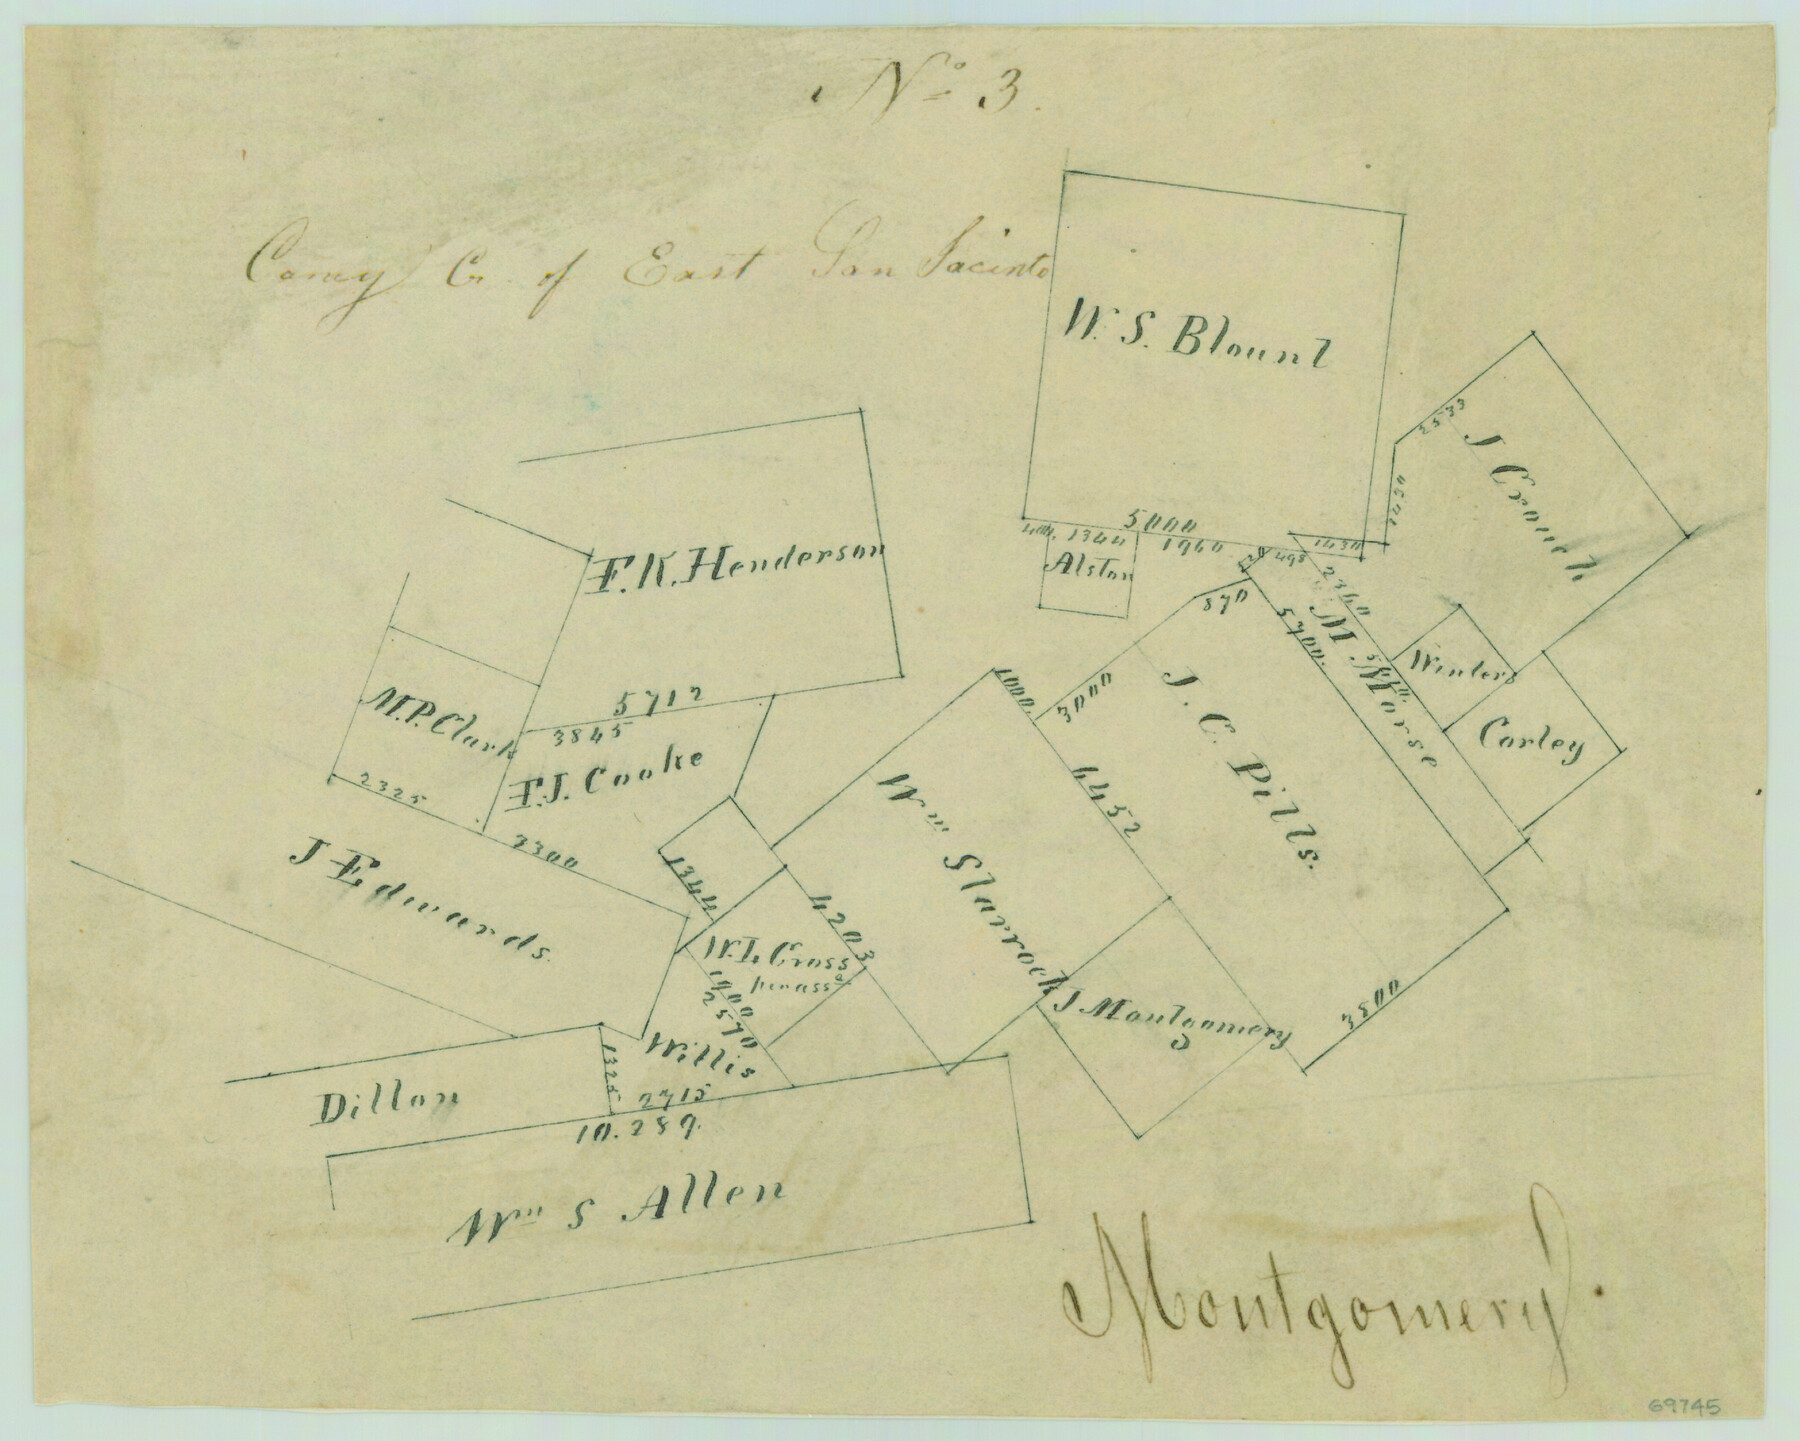 No 3.
Caney Cr. of East San Jacinto
W. S. Blount
2533
J Crouch
5000
400. 1344
1960
498
1430
Alston
870
2360
F. K. Henderson
M. P. Clark
5712
3845
F. J. Cooke
2325
2300
J Edwards.
1000.
3000
J. C. Pills.
5700.
M. Morse
Winters
Corley
4452
Wm Starrock
1344
4203
W. L. Cross
1900
2570
J Montgomery
3500
Willis
Dillon
1325
2715
10.289.
Wm S Allen
Montgomery.
69745